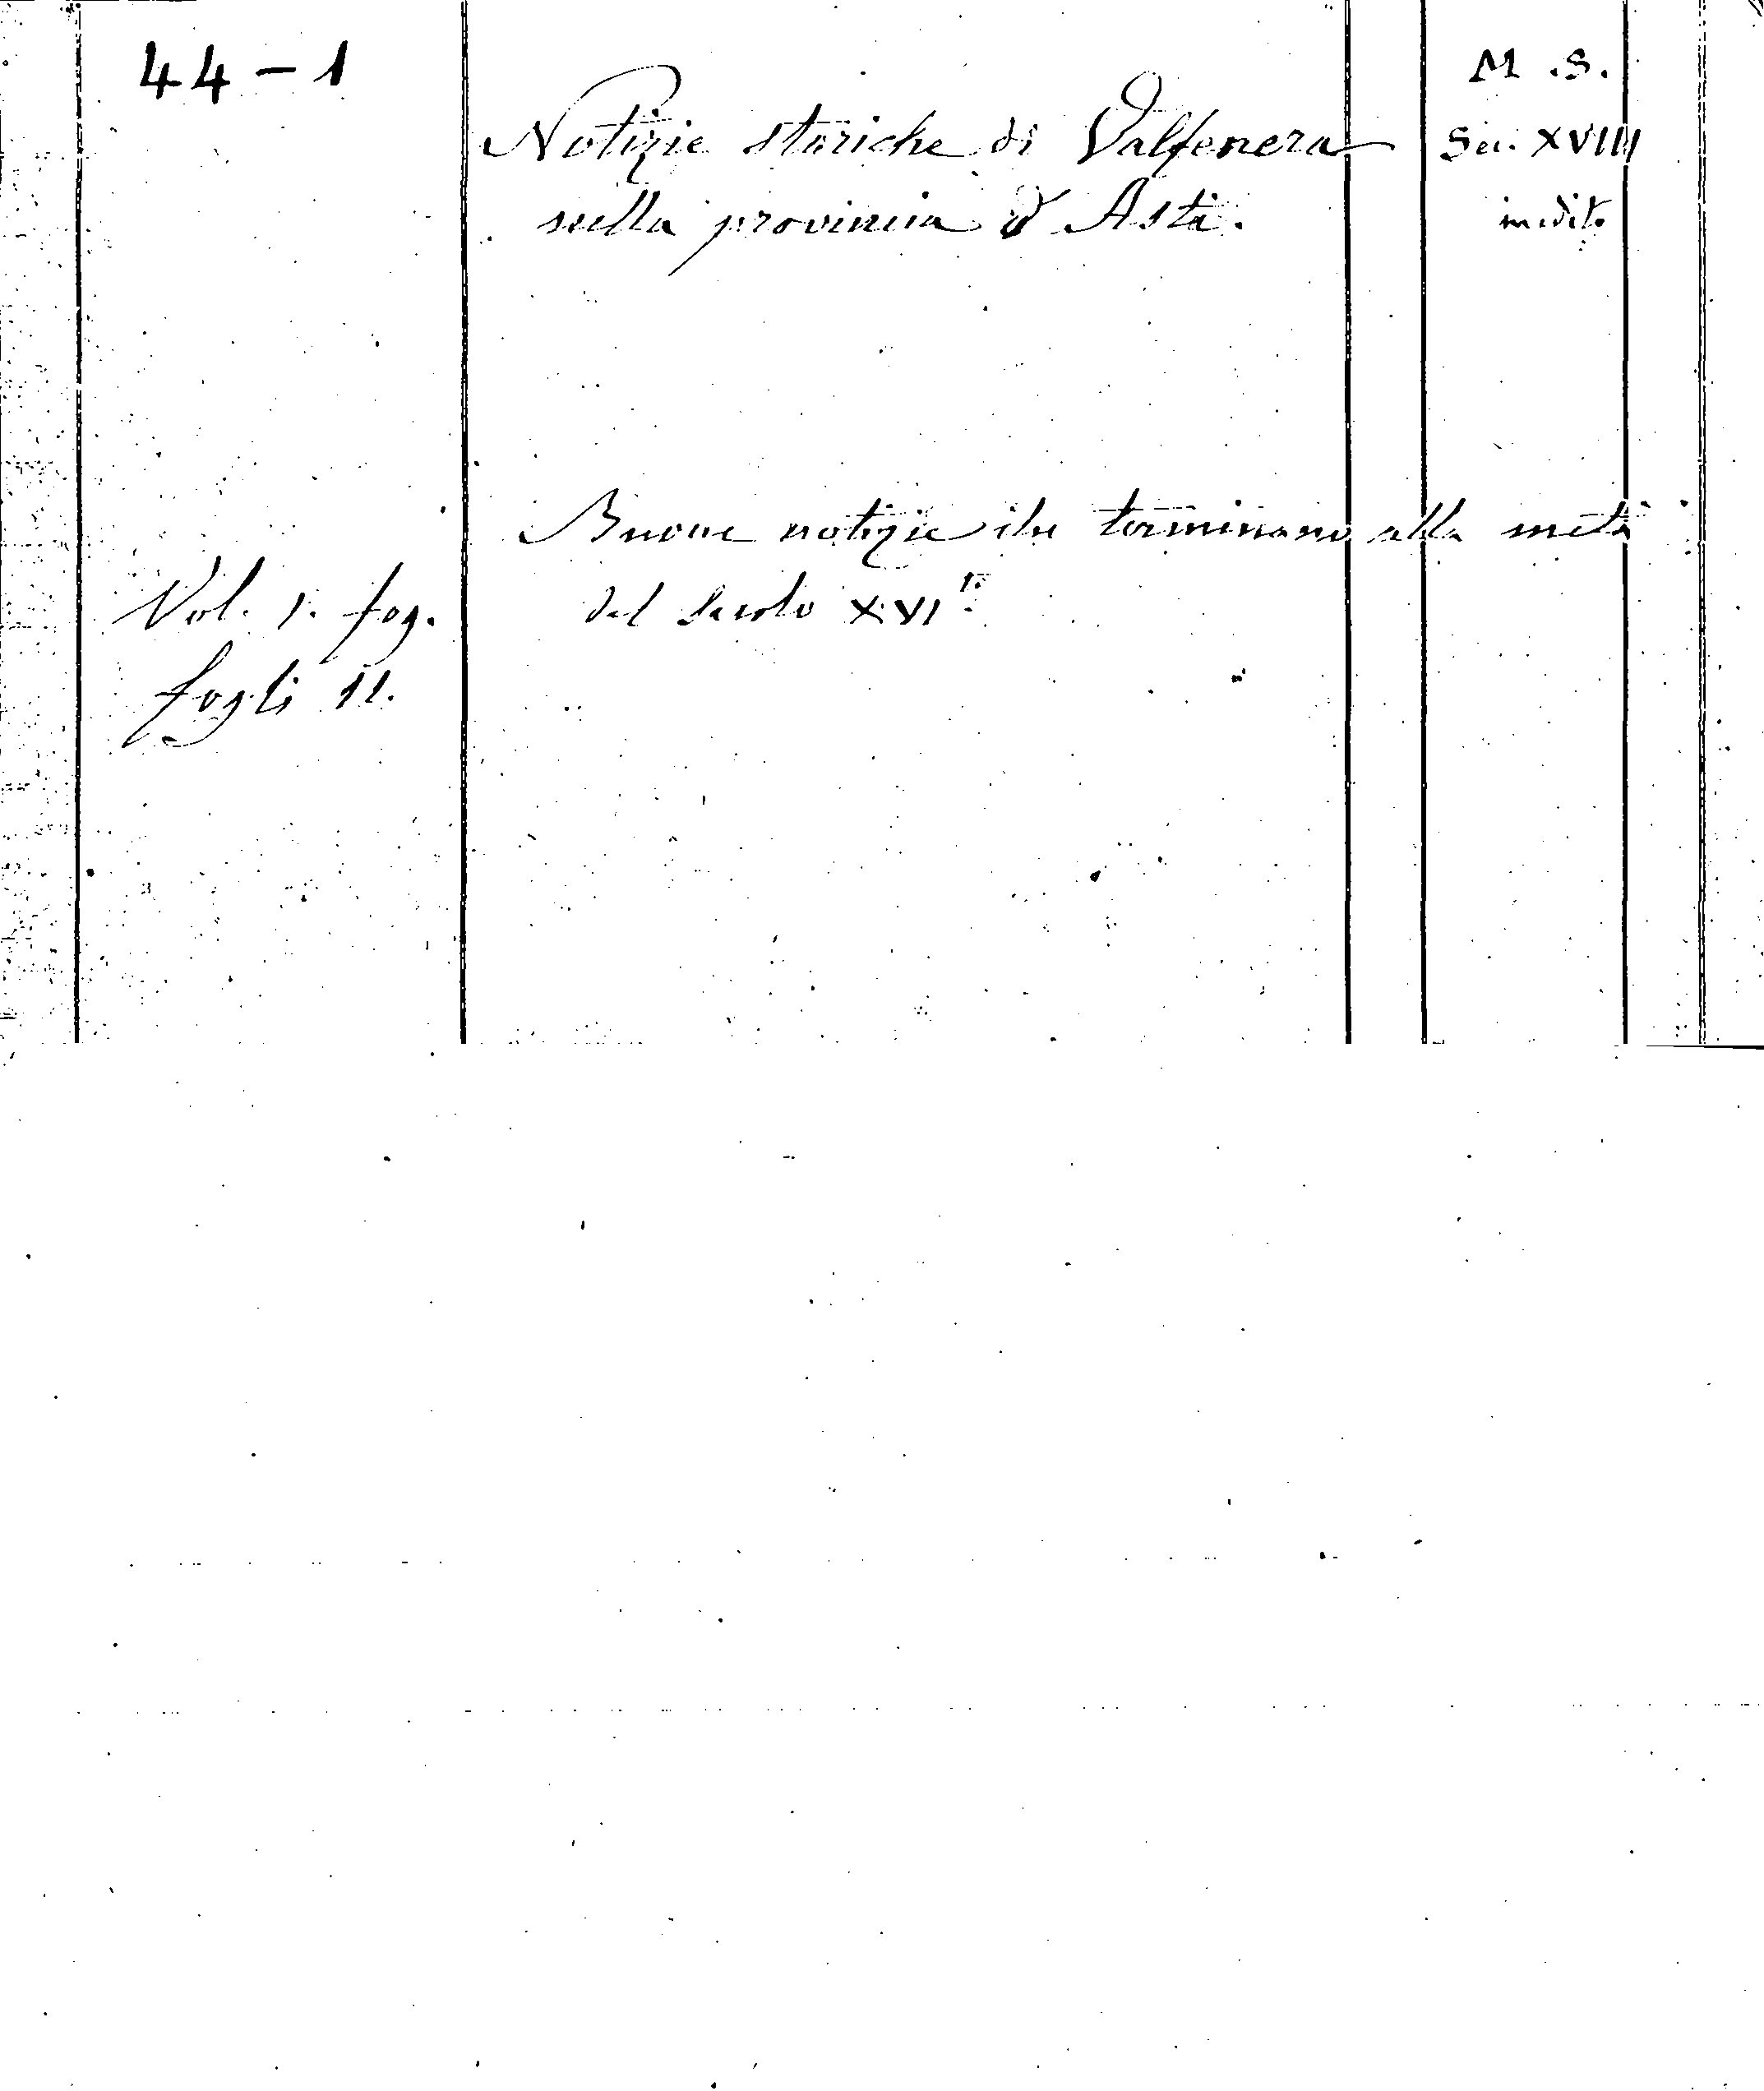 44-1
M.S.
Notizie storiche di Valfenera
Sec. XVIII
nella provincia d'Asti.
inedito
Buone notizie che terminano alla metà
Vol. 1. fog.
del Secolo XVI
fogli 11.